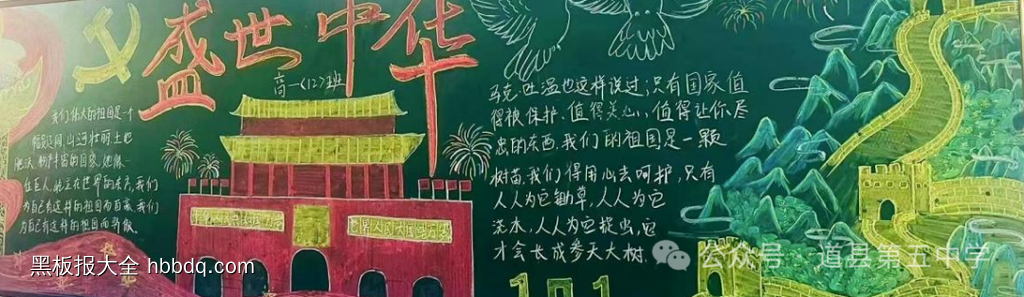 盛世中华
高一(12)班
我们伟大的祖国是一个
幅员辽阔,山河壮丽,土地
肥沃,物产丰富的国家,她像一
位巨人,屹立在世界的东方,我们
为自己有这样的祖国而自豪,我们
为自己有这样的祖国而骄傲。
中华人民共和国万岁
世界人民大团结万岁
马克·吐温也这样说过,只有国家值
得被保护、值得关心、值得让你尽
忠的东西,我们的祖国是一颗
树苗,我们得用心去呵护,只有
人人为它锄草,人人为它
浇水,人人为它捉虫,它
才会长成参天大树.
黑板报大全 hbbdq.com
公众号·道县第五中学